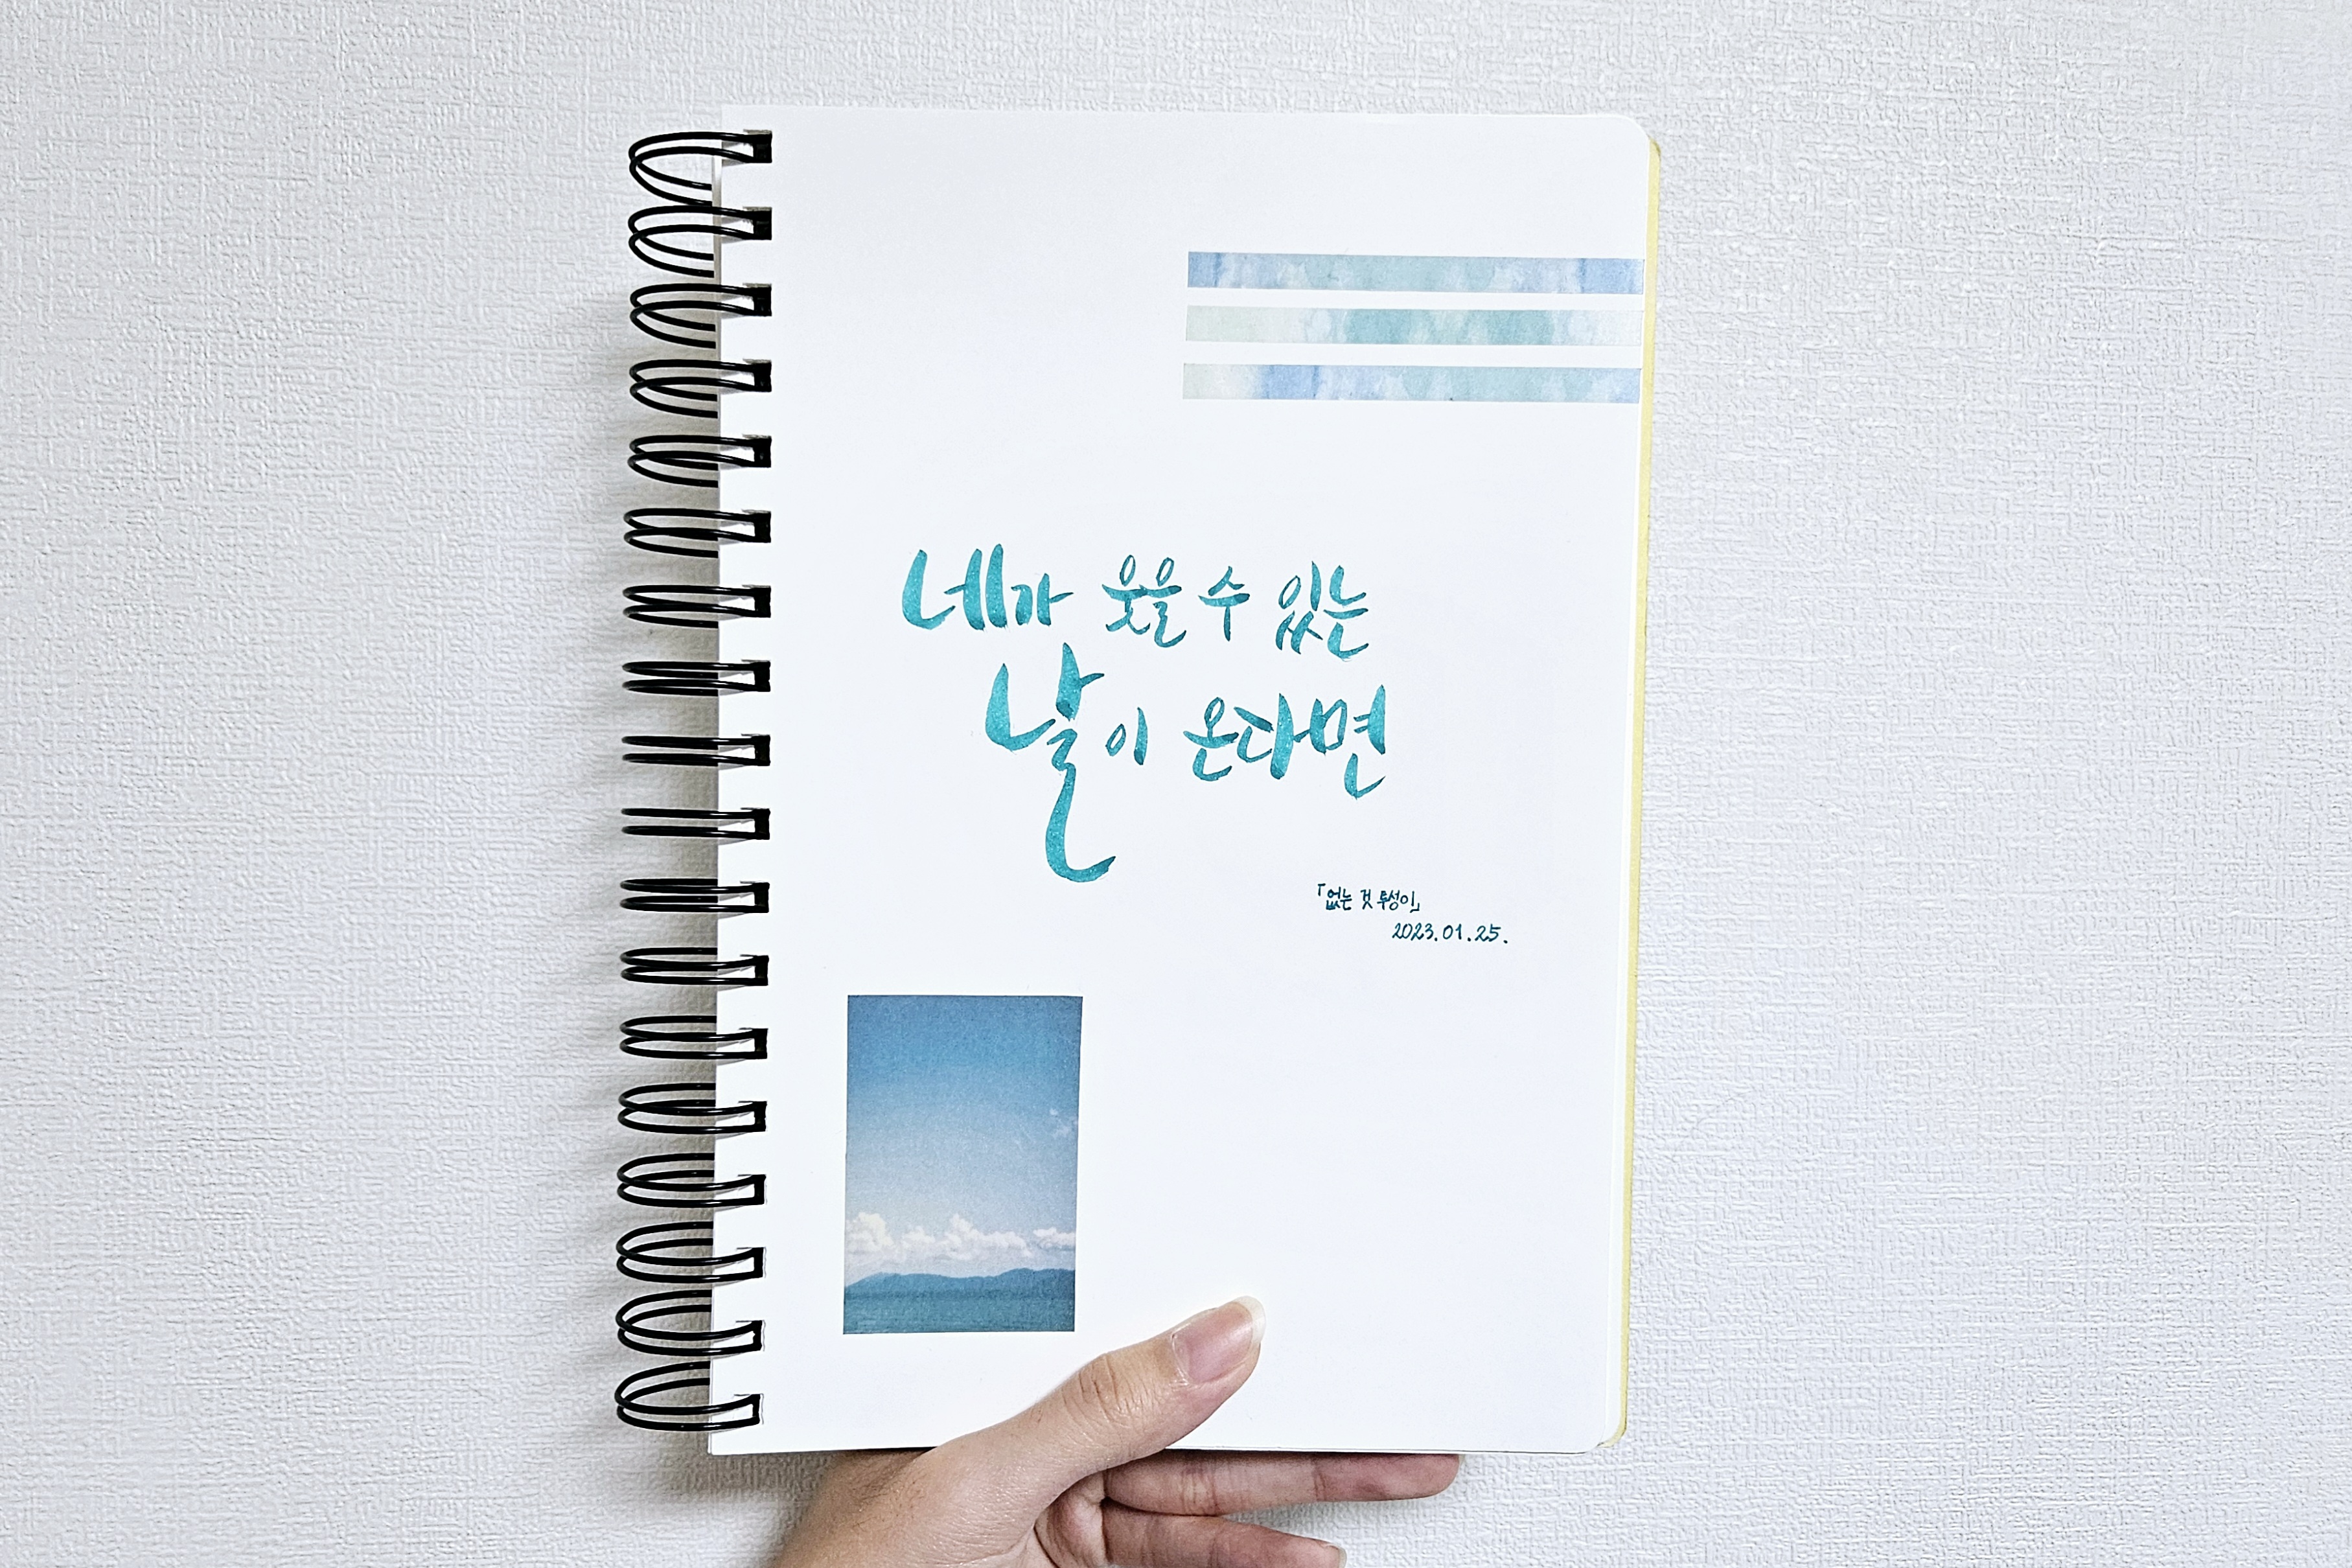 네가 웃을 수 있는
날이 온다면
「없는 것 투성이」
2023.01.25.